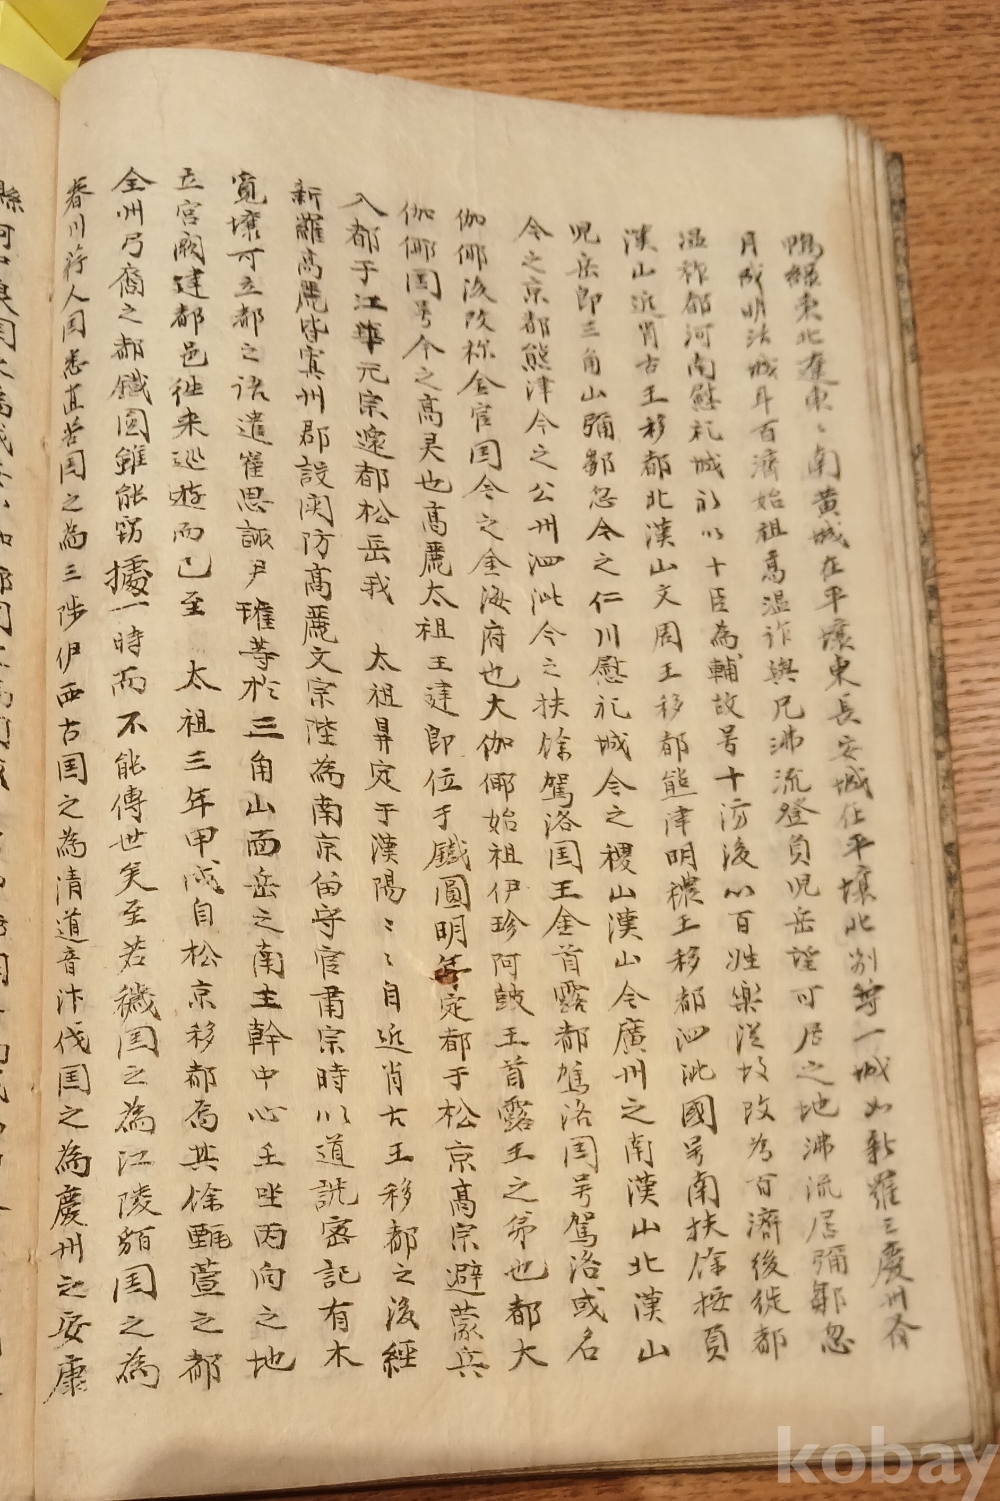 鴨綠東北遼東〻南黃城在平壤東長安城在平壤北別等一城如新羅三慶州谷
月城明活城耳百濟始祖高温祚與兄沸流登負児岳望可居之地沸流居弥鄒忽
温祚都河南慰礼城初以十臣為輔故号十济後以百姓樂從故改為百濟後徙都
漢山近肖古王移都北漢山文周王移都熊津明穠王移都泗沘國号南扶餘按負
児岳即三角山弥鄒忽今之仁川慰礼城今之稷山漢山今廣州之南漢山北漢山
今之京都熊津今之公州泗沘今之扶餘駕洛国王金首露都駕洛国号駕洛或名
伽倻後改称金官国今之金海府也大伽倻始祖伊珍阿豉王首露王之弟也都大
伽倻国号今之高灵也高麗太祖王建即位于鐵圓明年定都于松京高宗避蒙兵
入都于江華元宗還都松岳我 太祖昇定于漢陽〻〻自近肖古王移都之後經
新羅高麗皆寘州郡設関防高麗文宗陞為南京留守官肅宗時以道詵密記有木
覓壤可立都之語遣崔思諏尹瓘等於三角山面岳之南主幹中心壬坐丙向之地
立宮闕建都邑徃来巡遊而已至 太祖三年甲戌自松京移都焉其餘甄萱之都
全州弓裔之都鐵圓雖能竊據一時而不能傳世矣至若穢国之為江陵貊国之為
春川荇人国悉直苦国之為三陟伊西古国之為清道音汁伐国之為慶州之安康